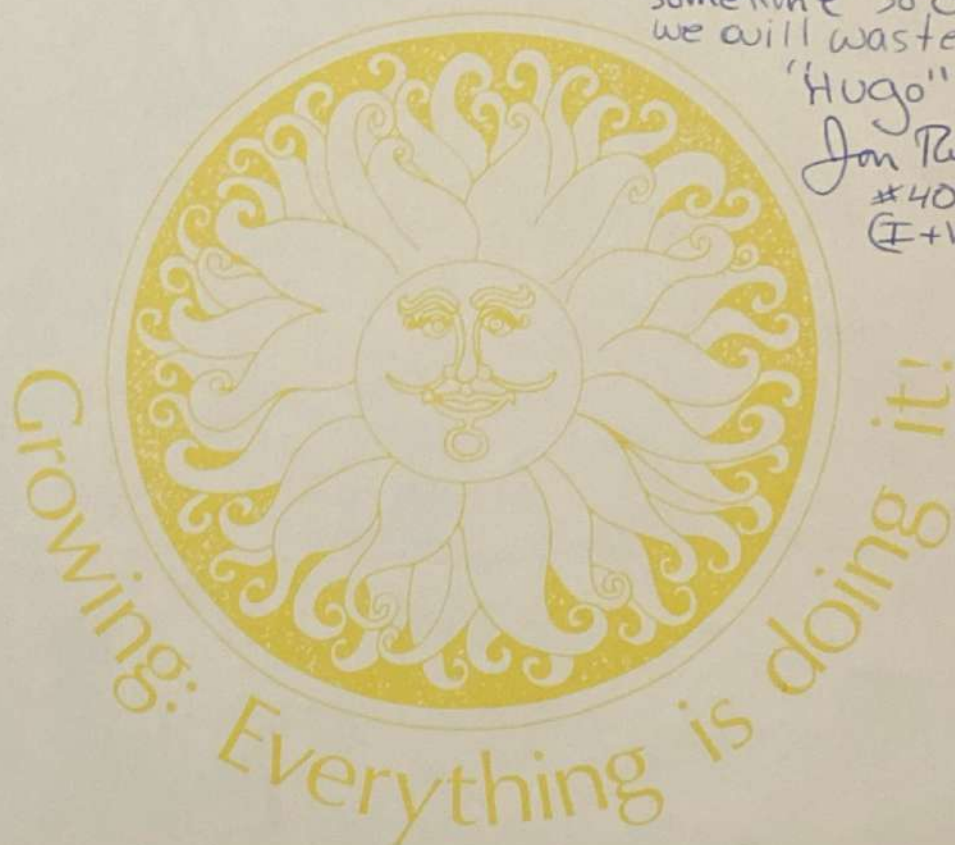 we will waste
"Hugo"
Jon
#40
Growing: Everything is doing it!